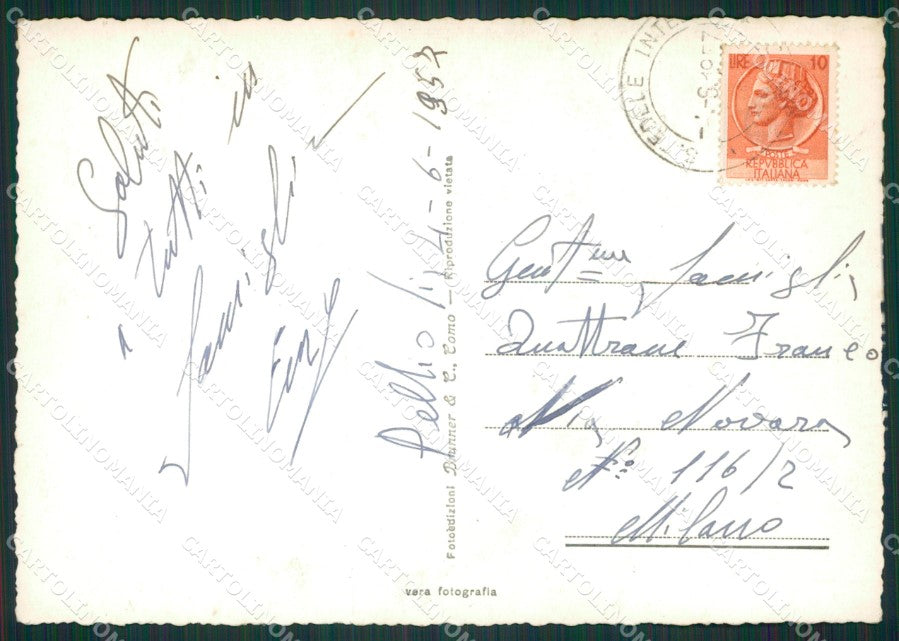 Saluti
a tutti in
famiglia
Enzo
Pellio li 4-6-1957
Fotoedizioni Brunner & C., Como — Riproduzione vietata
vera fotografia
LIRE 10
POSTE
REPVBBLICA
ITALIANA
Gent.mm famiglia
Quattrone Franco
Via Novara
N° 116/2
Milano
CARTOLINOMANIA